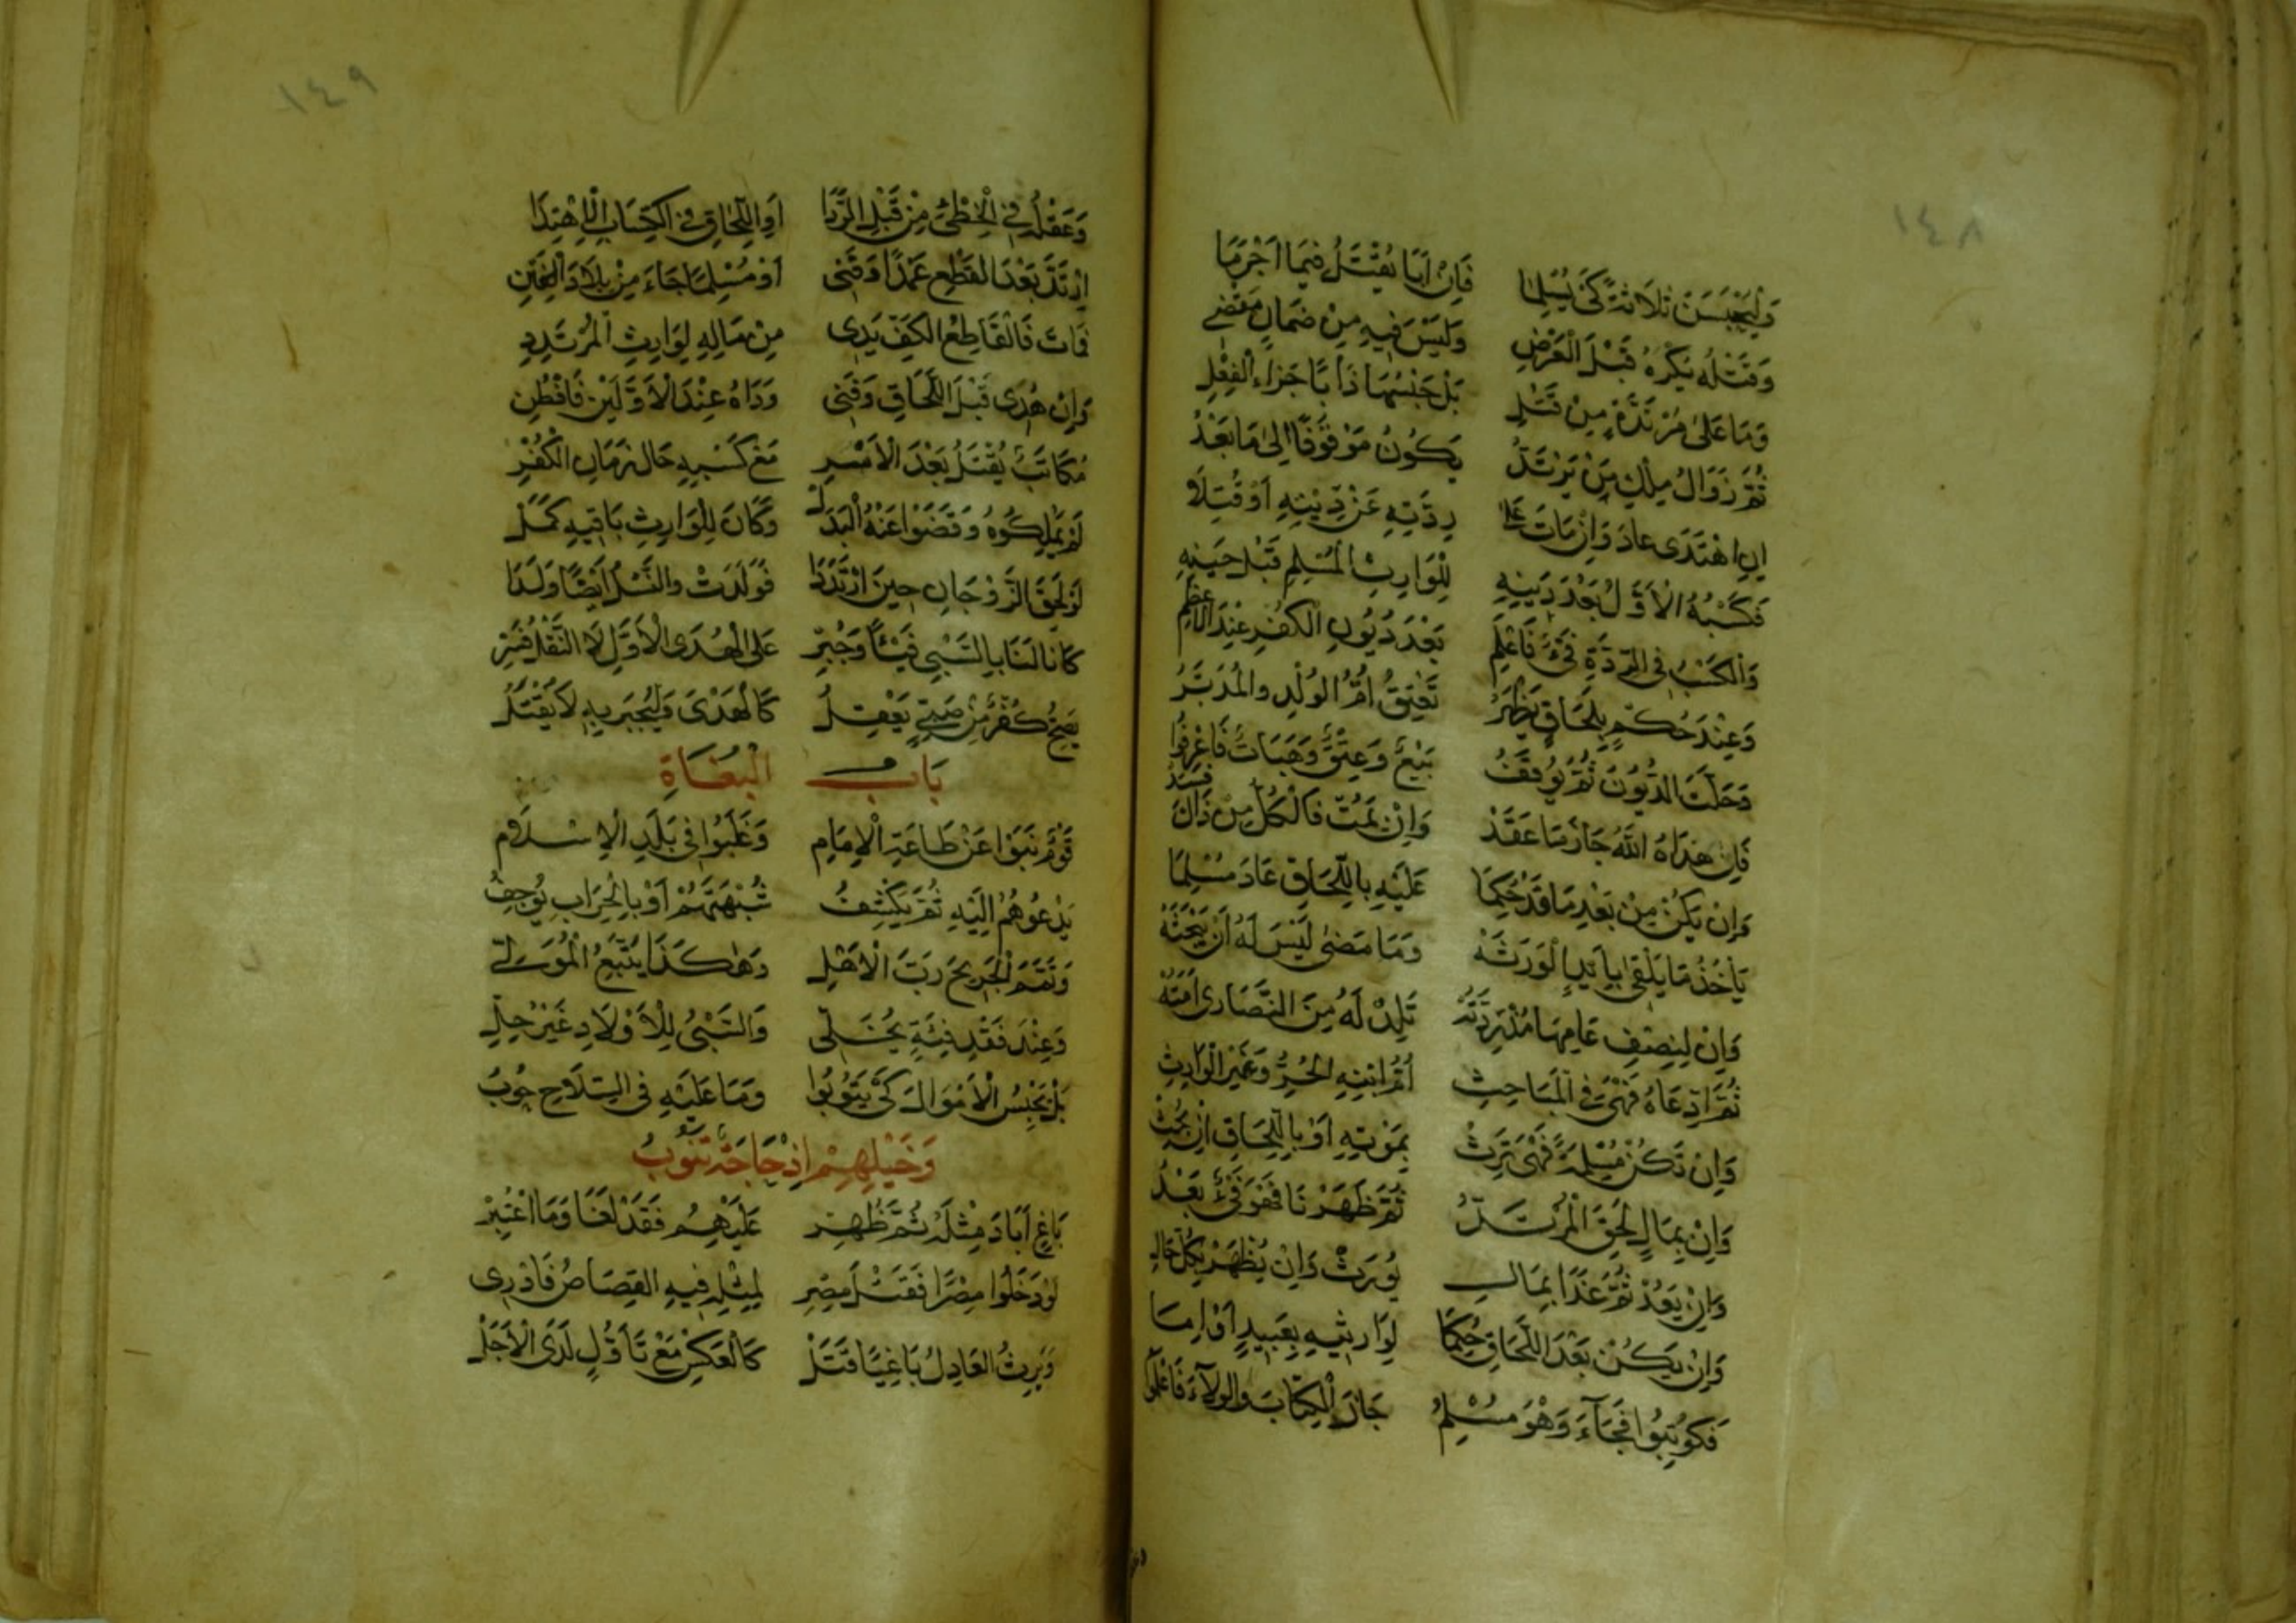 ١٤٨
وَلْيُحْبَسَنْ ثَلَاثَةً كَىْ يُسْلِمَا فَاِنْ اَبَا يُقْتَلُ فِيمَا اَجْرَمَا
وَقَتْلُهُ يُكْرَهُ قَبْلَ الْعَرْضِ وَلَيْسَ فِيهِ مِنْ ضَمَانٍ مَقْضِى
وَمَا عَلَى مُرْتَدَّةٍ مِنْ قَتْلِ بَلْ حَبْسُهَا دَأْبًا جَزَاءُ الْفِعْلِ
ثُمَّ زَوَالُ مِلْكِ مَنْ يَرْتَدُّ يَكُونُ مَوْقُوفًا اِلَى مَا بَعْدُ
اِنِ اهْتَدَى عَادَ وَاِنْ مَاتَ عَلَى رِدَّتِهِ عَنْ دِينِهِ اَوْ قُتِلَا
فَكَسْبُهُ الْاَوَّلُ بَعْدَ دَيْنِهِ لِلْوَارِثِ الْمُسْلِمِ قَبْلَ حَيْنِهِ
وَالْكَسْبُ فِى الرِّدَّةِ فَىْءٌ فَاعْلَمِ بَعْدَ دُيُونِ الْكُفْرِ عِنْدَ الْاَعْظَمِ
وَعِنْدَ حُكْمٍ بِلَحَاقٍ يَظْهَرُ تَعْتِقُ اُمُّ الْوُلْدِ وَالْمُدَبَّرُ
وَحَلَّتِ الدُّيُونُ ثُمَّ يُوقَفُ بَيْعٌ وَعِتْقٌ وَهِبَاتٌ فَاعْرِفُوا
فَاِنْ هَدَاهُ اللّٰهُ جَازَ مَا عَقَدْ وَاِنْ يَمُتْ فَالْكُلُّ مِنْ ذَاكَ فَسَدْ
وَاِنْ يَكُنْ مِنْ بَعْدِ مَا قَدْ حُكِمَا عَلَيْهِ بِاللَّحَاقِ عَادَ مُسْلِمَا
يَأْخُذُ مَا يَلْقَى بِاَيْدِى الْوَرَثَهْ وَمَا مَضَى لَيْسَ لَهُ اَنْ يَبْحَثَهْ
وَاِنْ لِنِصْفِ عَامِهَا مُذْ رِدَّتُهْ تَلِدْ لَهُ مِنَ النَّصَارَى اَمَتُهْ
ثُمَّ ادَّعَاهُ فَهْىَ فِى الْمَبَاحِثِ اُمُّ ابْنِهِ الْحُرِّ وَغَيْرِ الْوَارِثِ
وَاِنْ تَكُنْ مُسْلِمَةً فَهْوَ يَرِثْ بِمَوْتِهِ اَوْ بِاللَّحَاقِ اِنْ بُحِثْ
وَاِنْ بِمَالٍ لَحِقَ الْمُرْتَدُّ ثُمَّ ظَهَرْنَا فَهْوَ فَىْءٌ بَعْدُ
وَاِنْ يَعُدْ ثُمَّ غَدَا بِمَالِ يُورَثْ وَاِنْ يُظْهَرْ بِكُلِّ حَالِ
وَاِنْ يَكُنْ بَعْدَ اللَّحَاقِ حُكِمَا لِوَارِثِيهِ بِعَبِيدٍ اَوْ اِمَا
فَكُوتِبُوا فَجَآءَ وَهْوَ مُسْلِمُ جَازَ الْكِتَابُ وَالْوَلَآءُ فَاعْلَمُوا
١٤٩
وَعَقْلُهُ فِى الْخِطْئِ مِنْ قَبْلِ الرَّدَا اَوِ اللَّحَاقِ فِى اكْتِسَابِ الْاِهْتِدَا
اِرْتَدَّ بَعْدَ الْقَطْعِ عَمْدًا وَفَنِى اَوْ مُسْلِمًا جَاءَ مِنْ بِلَادِ
مَاتَ فَالْقَاطِعُ الْكَفِّ يَدِى مِنْ مَالِهِ لِوَارِثِ الْمُرْتَدِدِ
وَاِنْ هُدِى قَبْلَ اللَّحَاقِ وَفَنِى وَدَاهُ عِنْدَ الْاَوَّلَيْنِ فَافْطُنِ
مُكَاتَبٌ يُقْتَلُ بَعْدَ الْاَسْرِ مَعْ كَسْبِهِ حَالَ زَمَانِ الْكُفْرِ
لَمْ يَمْلِكُوهُ وَقَضَوْا عَنْهُ الْبَدَلْ وَكَانَ لِلْوَارِثِ بَاقِيهِ كَمَلْ
لَوْ لَحِقَ الزَّوْجَانِ حِينَ ارْتَدَدَا فَوَلَدَتْ وَالنَّسْلُ اَيْضًا وَلَدَا
كَانَا لَنَا بِالسَّبْىِ فَيْئًا وَجُبِرْ عَلَى الْهُدَى الْاَوَّلِ لَا النَّفْلُ
يَصِحُّ كُفْرٌ مِنْ صَبِىٍّ يَعْقِلُ كَالْهَدْىِ وَلْيُجْبَرْ بِهِ لَا يُقْتَلُ
بَابُ الْبُغَاةِ
قَوْمٌ نَبَوْا عَنْ طَاعَةِ الْاِمَامِ وَغَلَبُوا فِى بَلَدِ الْاِسْلَامِ
يَدْعُوهُمُ اِلَيْهِ ثُمَّ يَكْشِفُ شُبْهَتَهُمْ اَوْ بِالْحِرَابِ يُوجِفُ
وَتَمِّمِ الْجَرِيحَ رَبَّ الْاَهْلِ وَهَكَذَا يَتَّبِعُ الْمُوَلِّى
وَعِنْدَ فَقْدِ فِئَةٍ يُخَلِّى وَالسَّبْىُ لِلْاَوْلَادِ غَيْرُ حِلِّ
بَلْ يَحْبِسُ الْاَمْوَالَ كَىْ يَتُوبُوا وَمَا عَلَيْهِ فِى السِّلَاحِ حُوبُ
وَخَيْلِهِمْ اِذْ حَاجَةٌ تَنُوبُ
بَاغٍ اَبَادَ مِثْلَهُ ثُمَّ ظُهِرْ عَلَيْهِمُ فَقَدْ لَغَا وَمَا اعْتُبِرْ
لَوْ دَخَلُوا مِصْرًا فَقَتْلُ مِصْرِ لِمِثْلِهِ فِيهِ الْقِصَاصُ فَادْرِى
وَيَرِثُ الْعَادِلُ بَاغِيًا قَتَلْ كَالْعَكْسِ مَعْ تَأَوُّلٍ لَدَى الْاَجَلْ